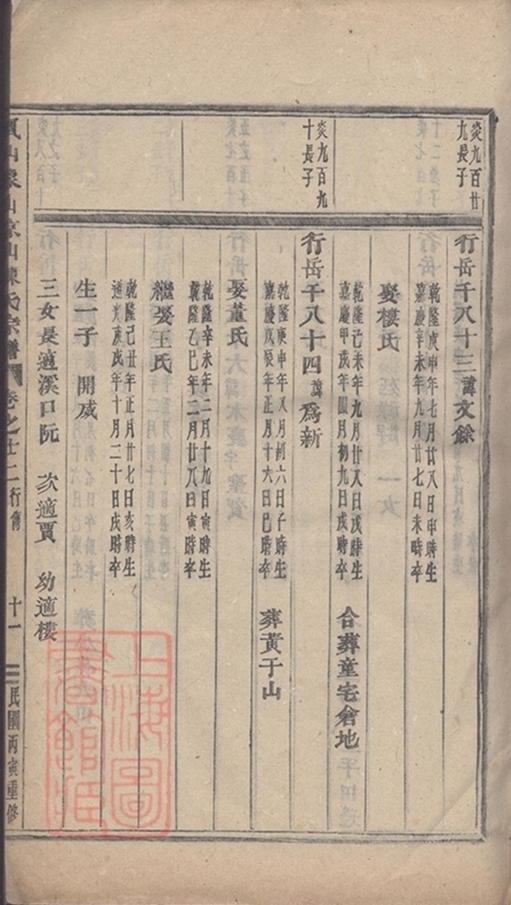 炎九百廿
九長子
行岳千八十三諱文餘
乾隆庚申年七月廿八日申時生
嘉慶辛未年九月廿七日未時卒
娶樓氏
乾隆己未年九月廿八日戌時生
嘉慶甲戌年四月初九日戌時卒
合葬童宅會地
炎九百九
十長子
行岳千八十四諱為新
乾隆庚申年又月初六日子時生
嘉慶戊辰年三月十六日巳時卒
葬黃于山
娶董氏
乾隆辛未年二月十九日寅時生
乾隆乙巳年二月廿八日寅時卒
繼娶王氏
乾隆己丑年正月廿七日亥時生
道光庚戌年十月二十日戌時卒
生一子 開威
三女長適溪口阮 次適賈 幼適樓
陳氏宗譜 卷之十二行傳 十一 民國丙寅重修
上海圖書館藏